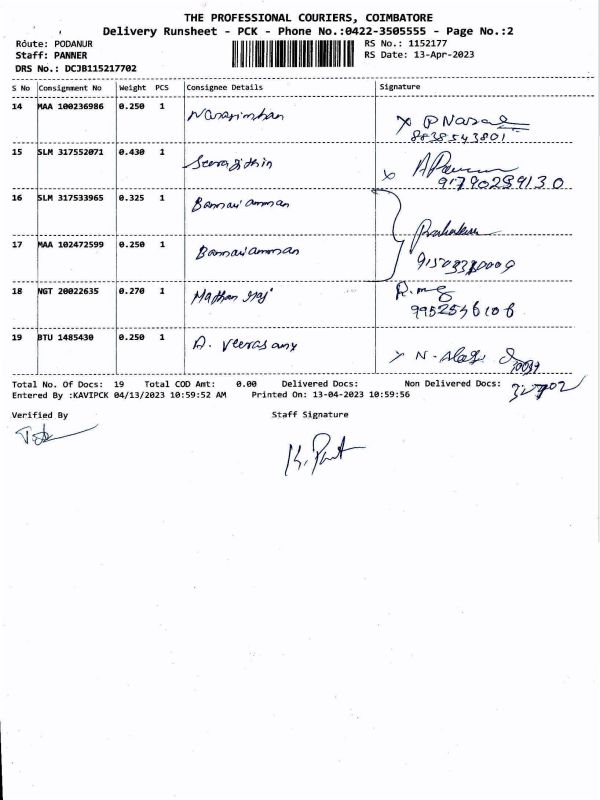 THE PROFESSIONAL COURIERS, COIMBATORE
Delivery Runsheet - PCK - Phone No.:0422-3505555 - Page No.:2
Route: PODANUR RS No.: 1152177
Staff: PANNER RS Date: 13-Apr-2023
DRS No.: DCJB115217702
S No Consignment No Weight PCS Consignee Details Signature
14 MAA 100236986 0.250 1 Narasimhan
8838543801
15 SLM 317552071 0.430 1
91790299130
16 SLM 317533965 0.325 1 Bannari amman
Prabakaran
17 MAA 102472599 0.250 1 Bannari amman
18 NGT 20022635 0.270 1 Madhan raj
9952546106
19 BTU 1485430 0.250 1 A. Veerasamy
Total No. Of Docs: 19 Total COD Amt: 0.00 Delivered Docs: Non Delivered Docs:
Entered By :KAVIPCK 04/13/2023 10:59:52 AM Printed On: 13-04-2023 10:59:56
Verified By Staff Signature